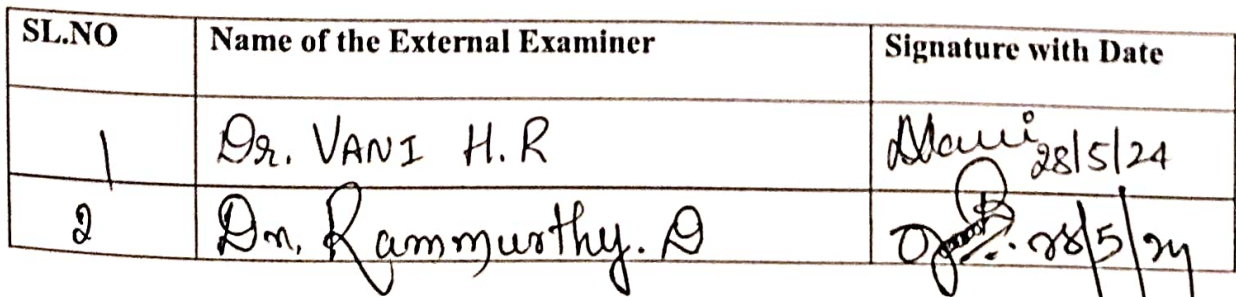 SL.NO Name of the External Examiner Signature with Date
1 Dr. VANI H.R 28/5/24
2 Dr. Rammurthy. D 28/5/24